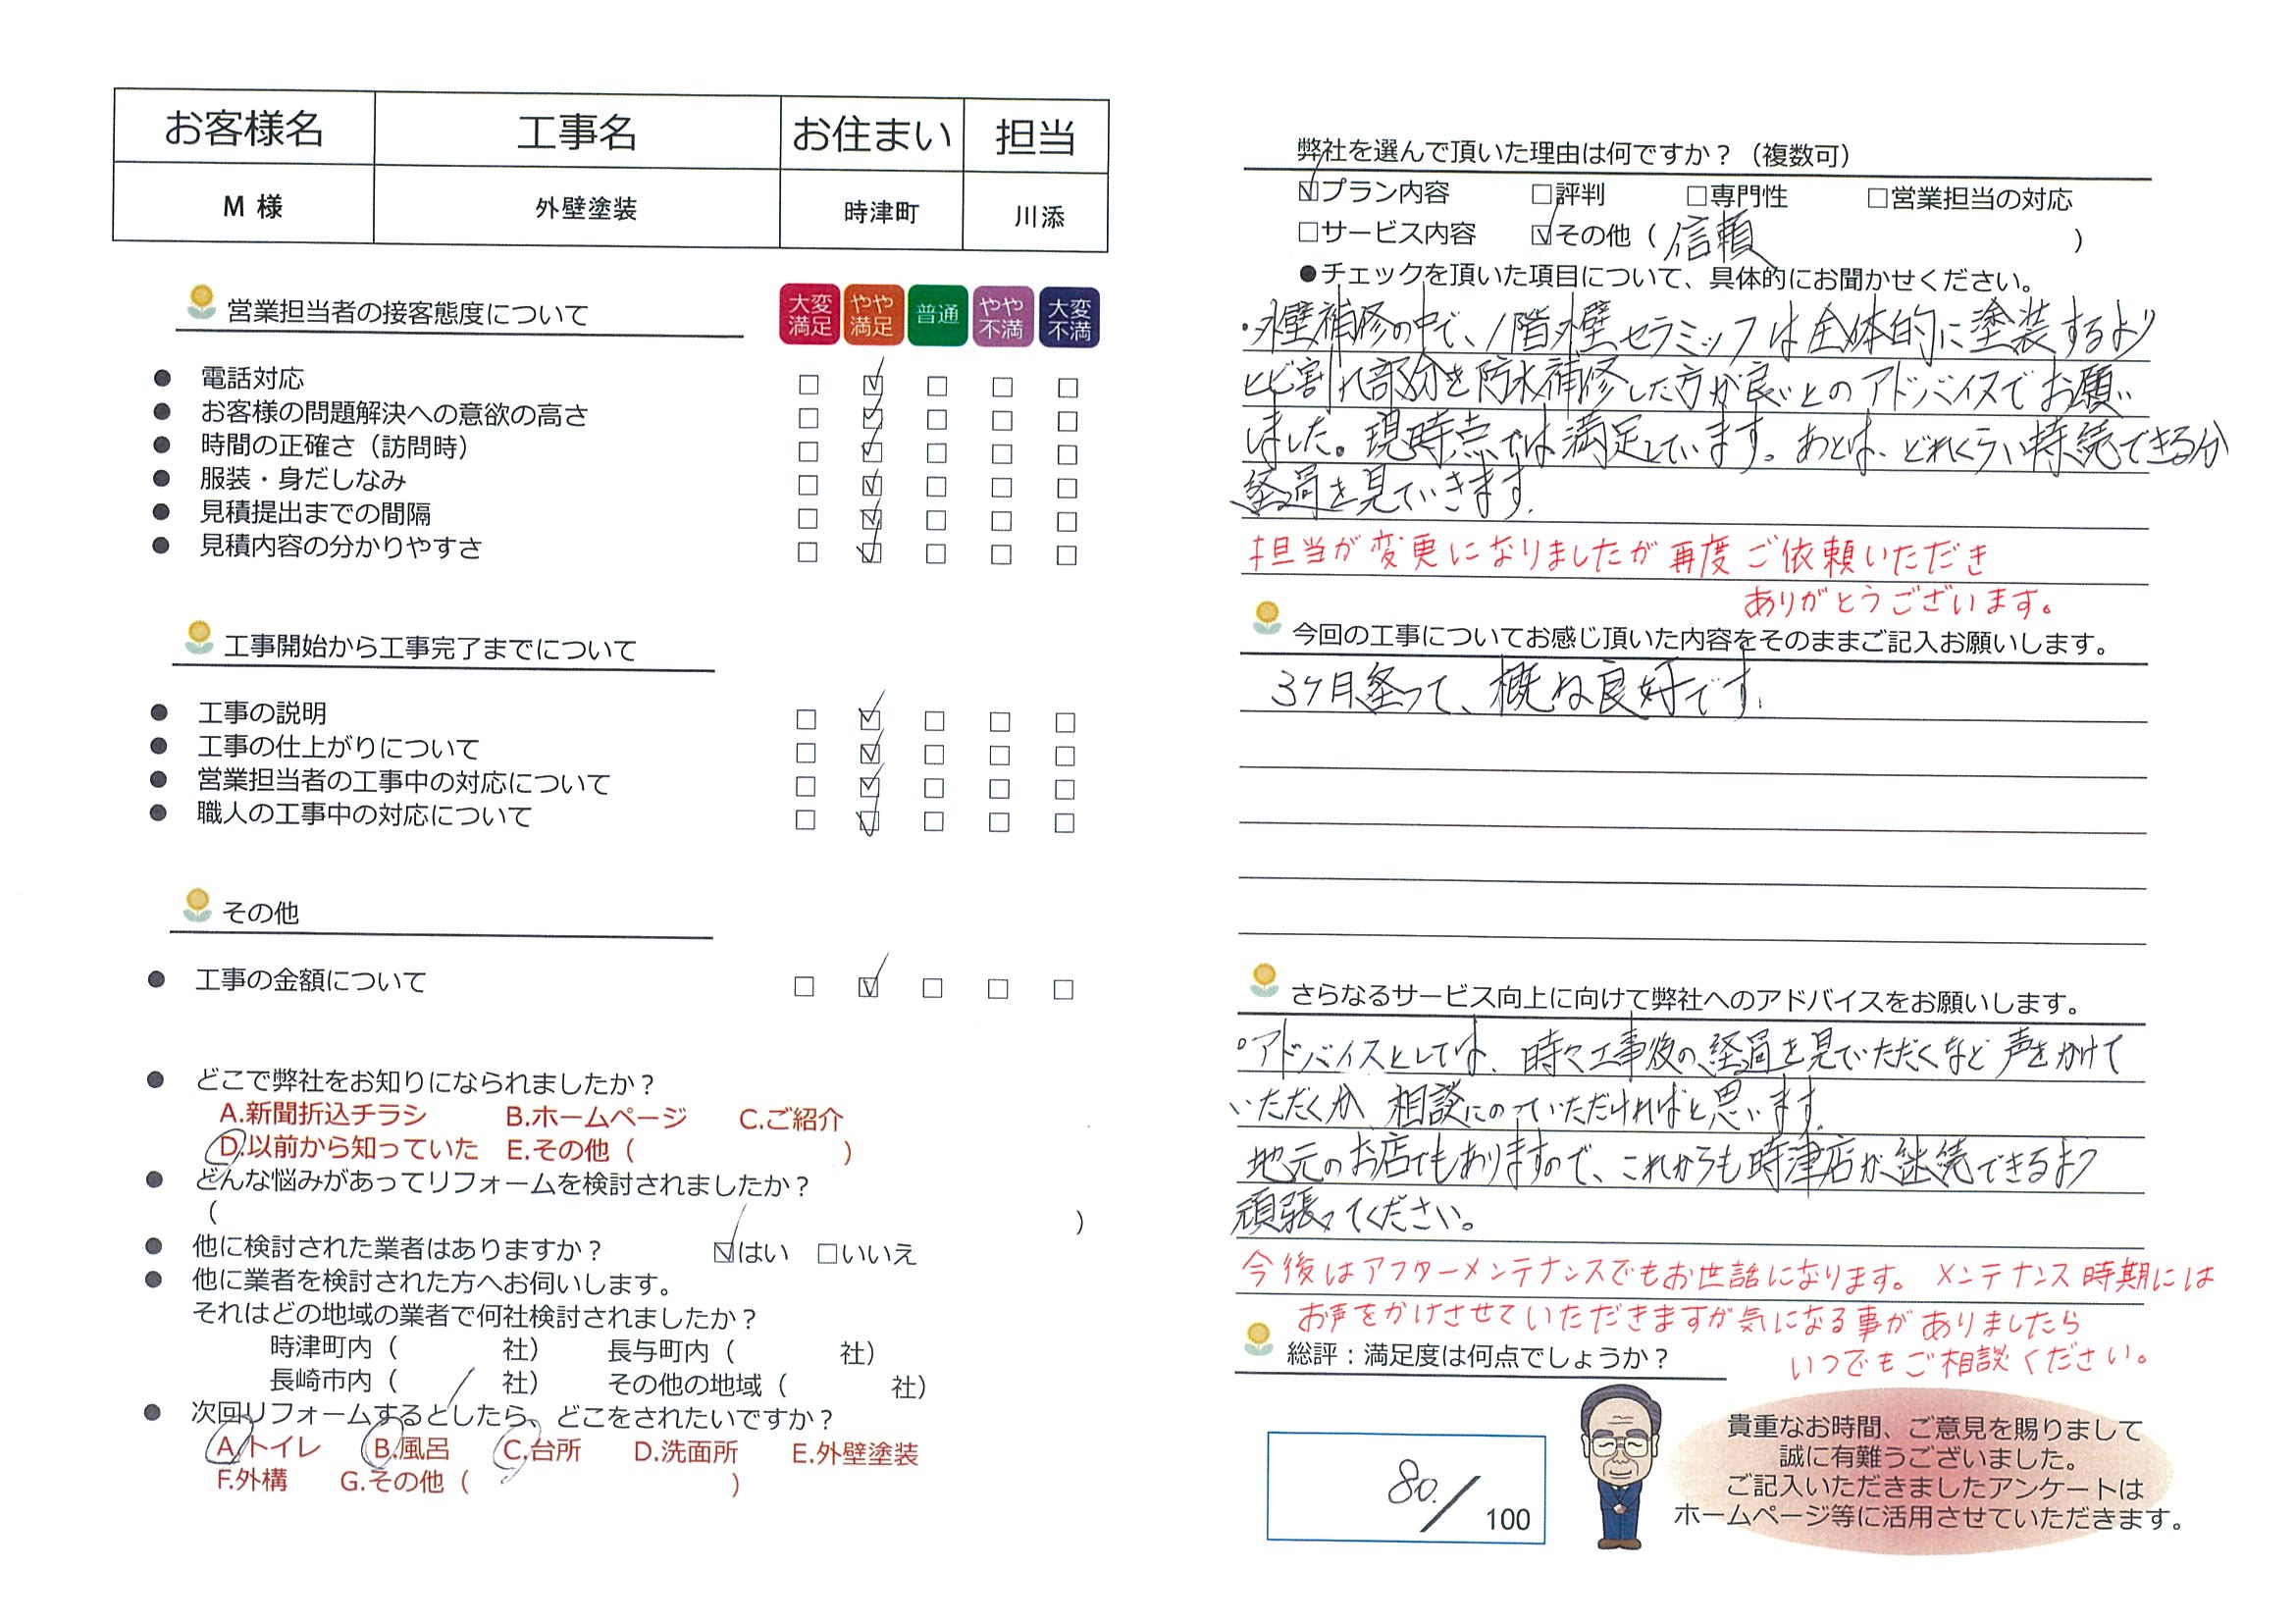 お客様名 工事名 お住まい 担当
M 様 外壁塗装 時津町 川添
営業担当者の接客態度について
大変満足 やや満足 普通 やや不満 大変不満
● 電話対応 □ ☑ □ □ □
● お客様の問題解決への意欲の高さ □ ☑ □ □ □
● 時間の正確さ（訪問時） □ ☑ □ □ □
● 服装・身だしなみ □ ☑ □ □ □
● 見積提出までの間隔 □ ☑ □ □ □
● 見積内容の分かりやすさ □ ☑ □ □ □
工事開始から工事完了までについて
● 工事の説明 □ ☑ □ □ □
● 工事の仕上がりについて □ ☑ □ □ □
● 営業担当者の工事中の対応について □ ☑ □ □ □
● 職人の工事中の対応について □ ☑ □ □ □
その他
● 工事の金額について □ ☑ □ □ □
● どこで弊社をお知りになられましたか？
A.新聞折込チラシ B.ホームページ C.ご紹介
D.以前から知っていた E.その他（ ）
● どんな悩みがあってリフォームを検討されましたか？
（ ）
● 他に検討された業者はありますか？ ☑はい □いいえ
● 他に業者を検討された方へお伺いします。
それはどの地域の業者で何社検討されましたか？
時津町内（ 社） 長与町内（ 社）
長崎市内（ / 社） その他の地域（ 社）
● 次回リフォームするとしたら、どこをされたいですか？
A.トイレ B.風呂 C.台所 D.洗面所 E.外壁塗装
F.外構 G.その他（ ）
弊社を選んで頂いた理由は何ですか？（複数可）
☑プラン内容 □評判 □専門性 □営業担当の対応
□サービス内容 ☑その他（信頼 ）
●チェックを頂いた項目について、具体的にお聞かせください。
・外壁補修の中で、1階外壁セラミックは全体的に塗装するより
ヒビ割れ部分を防水補修した方が良いとのアドバイスでお願い
しました。現時点では満足しています。あとは、どれくらい持続できるか
経過を見ていきます.
担当が変更になりましたが再度ご依頼いただき
ありがとうございます。
今回の工事についてお感じ頂いた内容をそのままご記入お願いします。
3ケ月経って、概ね良好です.
さらなるサービス向上に向けて弊社へのアドバイスをお願いします。
・アドバイスとしては、時々工事後の経過を見ていただくなど声をかけて
いただくか 相談にのっていただければと思います.
地元のお店でもありますので、これからも時津店が継続できるよう
頑張ってください。
今後はアフターメンテナンスでもお世話になります。メンテナンス時期には
お声をかけさせていただきますが気になる事がありましたら
いつでもご相談ください。
総評：満足度は何点でしょうか？
80./100
貴重なお時間、ご意見を賜りまして
誠に有難うございました。
ご記入いただきましたアンケートは
ホームページ等に活用させていただきます。